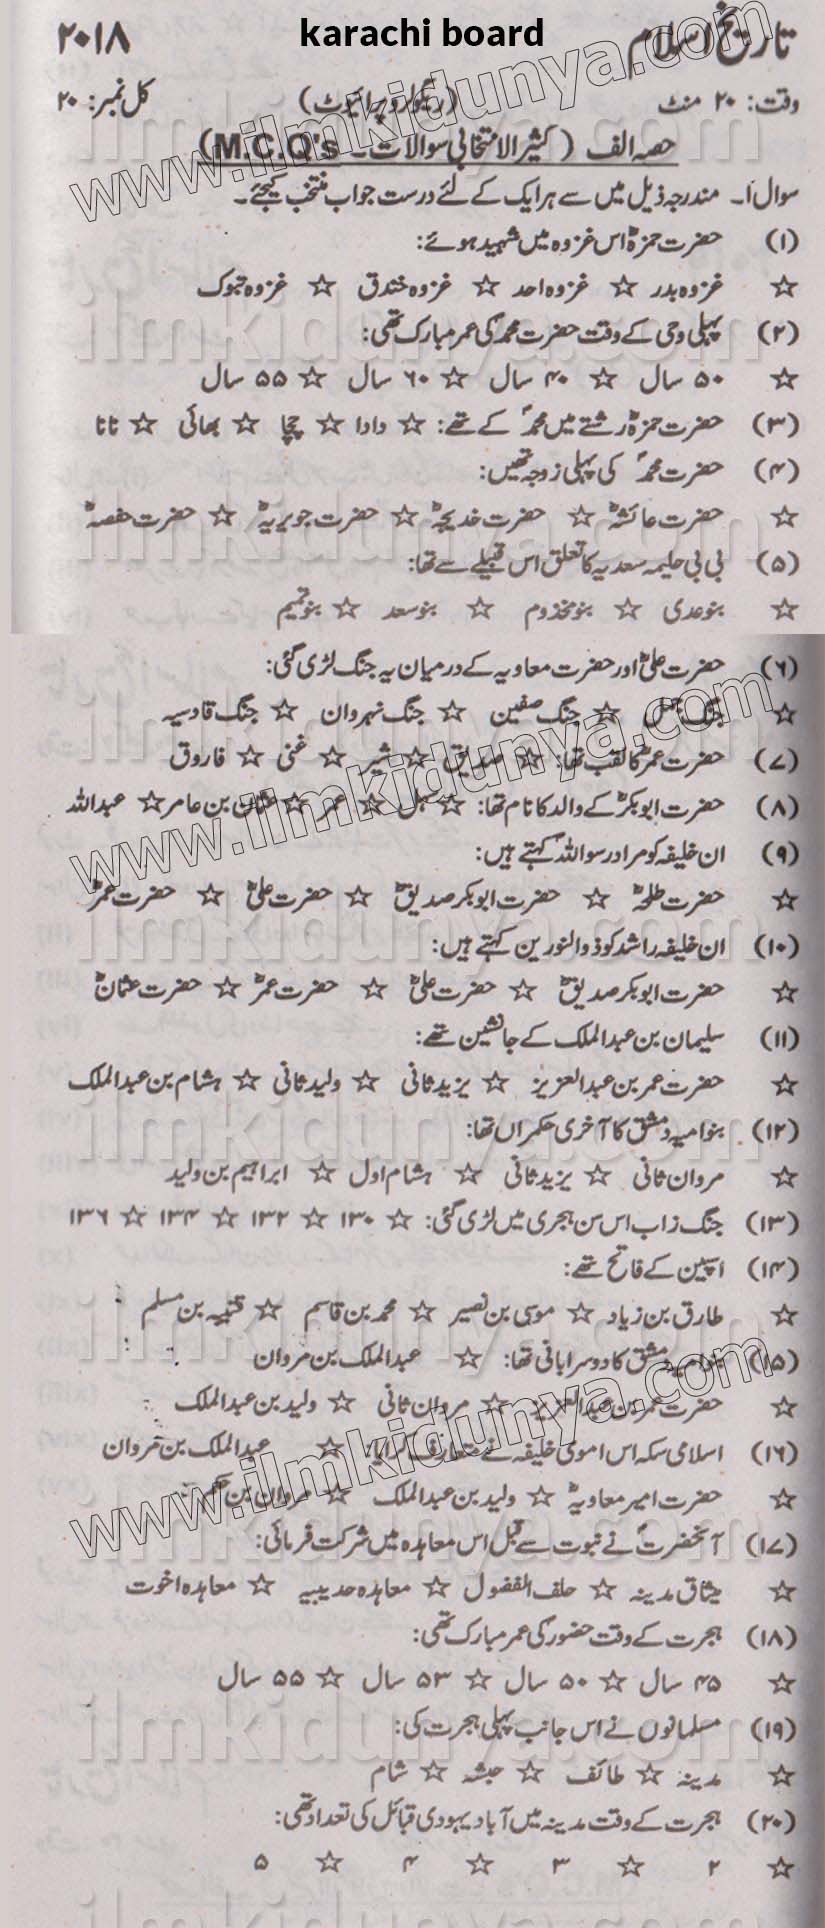 karachi board
تاریخ اسلام ۲۰۱۸
وقت: ۲۰ منٹ (ریگولر و پرائیوٹ) کل نمبر: ۲۰
حصہ الف (کثیر الانتخابی سوالات۔ M.C.Q's)
سوال ۱۔ مندرجہ ذیل میں سے ہر ایک کے لئے درست جواب منتخب کیجئے۔
(۱) حضرت حمزہؓ اس غزوہ میں شہید ہوئے:
☆ غزوہ بدر ☆ غزوہ احد ☆ غزوہ خندق ☆ غزوہ تبوک
(۲) پہلی وحی کے وقت حضرت محمدؐ کی عمر مبارک تھی:
☆ ۵۰ سال ☆ ۴۰ سال ☆ ۶۰ سال ☆ ۵۵ سال
(۳) حضرت حمزہؓ رشتے میں محمدؐ کے تھے: ☆ دادا ☆ چچا ☆ بھائی ☆ نانا
(۴) حضرت محمدؐ کی پہلی زوجہ تھیں:
☆ حضرت عائشہؓ ☆ حضرت خدیجہؓ ☆ حضرت جویریہؓ ☆ حضرت حفصہؓ
(۵) بی بی حلیمہ سعدیہ کا تعلق اس قبیلے سے تھا:
☆ بنو عدی ☆ بنو مخذوم ☆ بنو سعد ☆ بنو تمیم
(۶) حضرت علیؓ اور حضرت معاویہ کے درمیان یہ جنگ لڑی گئی:
☆ جنگ جمل ☆ جنگ صفین ☆ جنگ نہروان ☆ جنگ قادسیہ
(۷) حضرت عمرؓ کا لقب تھا: ☆ صدیق ☆ شیر ☆ غنی ☆ فاروق
(۸) حضرت ابوبکرؓ کے والد کا نام تھا: ☆ سہل ☆ عمر ☆ عثمان بن عامر ☆ عبداللہ
(۹) ان خلیفہ کو مراد رسول اللہؐ کہتے ہیں:
☆ حضرت طلحہؓ ☆ حضرت ابوبکر صدیقؓ ☆ حضرت علیؓ ☆ حضرت عمرؓ
(۱۰) ان خلیفہ راشد کو ذوالنورین کہتے ہیں:
☆ حضرت ابوبکر صدیقؓ ☆ حضرت علیؓ ☆ حضرت عمرؓ ☆ حضرت عثمانؓ
(۱۱) سلیمان بن عبدالملک کے جانشین تھے:
☆ حضرت عمر بن عبدالعزیز ☆ یزید ثانی ☆ ولید ثانی ☆ ہشام بن عبدالملک
(۱۲) بنو امیہ دمشق کا آخری حکمراں تھا:
☆ مروان ثانی ☆ یزید ثانی ☆ ہشام اول ☆ ابراہیم بن ولید
(۱۳) جنگ زاب اس سن ہجری میں لڑی گئی: ☆ ۱۳۰ ☆ ۱۳۲ ☆ ۱۳۴ ☆ ۱۳۶
(۱۴) اسپین کے فاتح تھے:
☆ طارق بن زیاد ☆ موسی بن نصیر ☆ محمد بن قاسم ☆ قتیبہ بن مسلم
(۱۵) بنو امیہ دمشق کا دوسرا بانی تھا: ☆ عبدالملک بن مروان
☆ حضرت عمر بن عبدالعزیز ☆ مروان ثانی ☆ ولید بن عبدالملک
(۱۶) اسلامی سکہ اس اموی خلیفہ نے متعارف کرایا: ☆ عبدالملک بن مروان
☆ حضرت امیر معاویہؓ ☆ ولید بن عبدالملک ☆ مروان بن حکم
(۱۷) آنحضرتؐ نے نبوت سے قبل اس معاہدہ میں شرکت فرمائی:
☆ میثاق مدینہ ☆ حلف الفضول ☆ معاہدہ حدیبیہ ☆ معاہدہ اخوت
(۱۸) ہجرت کے وقت حضورؐ کی عمر مبارک تھی:
☆ ۴۵ سال ☆ ۵۰ سال ☆ ۵۳ سال ☆ ۵۵ سال
(۱۹) مسلمانوں نے اس جانب پہلی ہجرت کی:
☆ مدینہ ☆ طائف ☆ حبشہ ☆ شام
(۲۰) ہجرت کے وقت مدینہ میں آباد یہودی قبائل کی تعداد تھی:
☆ ۲ ☆ ۳ ☆ ۴ ☆ ۵
www.ilmkidunya.com
www.ilmkidunya.com
www.ilmkidunya.com
ilmkidunya.com